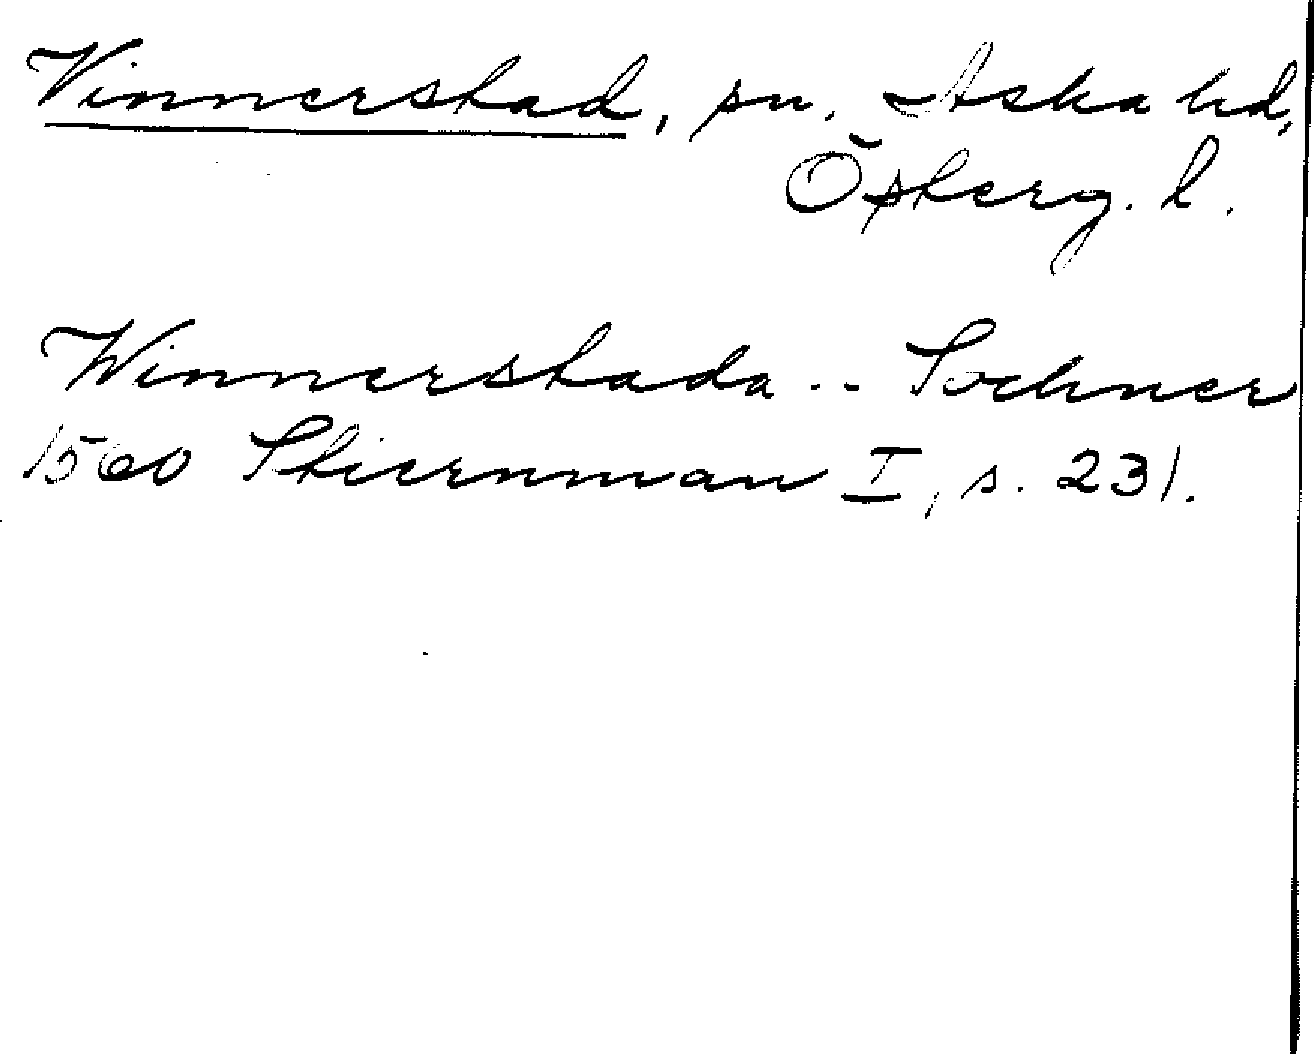 Vinnerstad, sn. Aska hd,
Österg. l.
Winnerstada .. Sochner
1560 Stiernman I, s. 231.